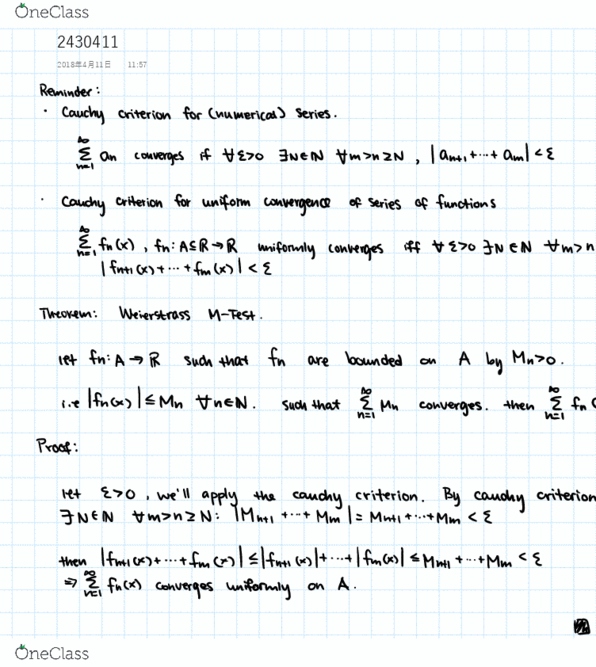 OneClass
2430411
2018年4月11日 11:57
Reminder:
· Cauchy criterion for (numerical) series.
∞
Σ an converges if ∀ε>0 ∃N∈ℕ ∀m>n≥N, |an+1+···+am|<ε
n=1
· Cauchy criterion for uniform convergence of series of functions
∞
Σ fn(x), fn: A⊆ℝ→ℝ uniformly converges iff ∀ε>0 ∃N∈ℕ ∀m>n
n=1
|fn+1(x)+···+fm(x)|<ε
Theorem: Weierstrass M-Test.
let fn: A→ℝ such that fn are bounded on A by Mn>0.
i.e |fn(x)|≤Mn ∀n∈ℕ. such that ∞Σn=1 Mn converges. then ∞Σn=1 fn(
Proof:
let ε>0, we'll apply the cauchy criterion. By cauchy criterion
∃N∈ℕ ∀m>n≥N: |Mn+1+···+Mm|=Mn+1+···+Mm<ε
then |fn+1(x)+···+fm(x)|≤|fn+1(x)|+···+|fm(x)|≤Mn+1+···+Mm<ε
⇒ ∞Σn=1 fn(x) converges uniformly on A.
OneClass